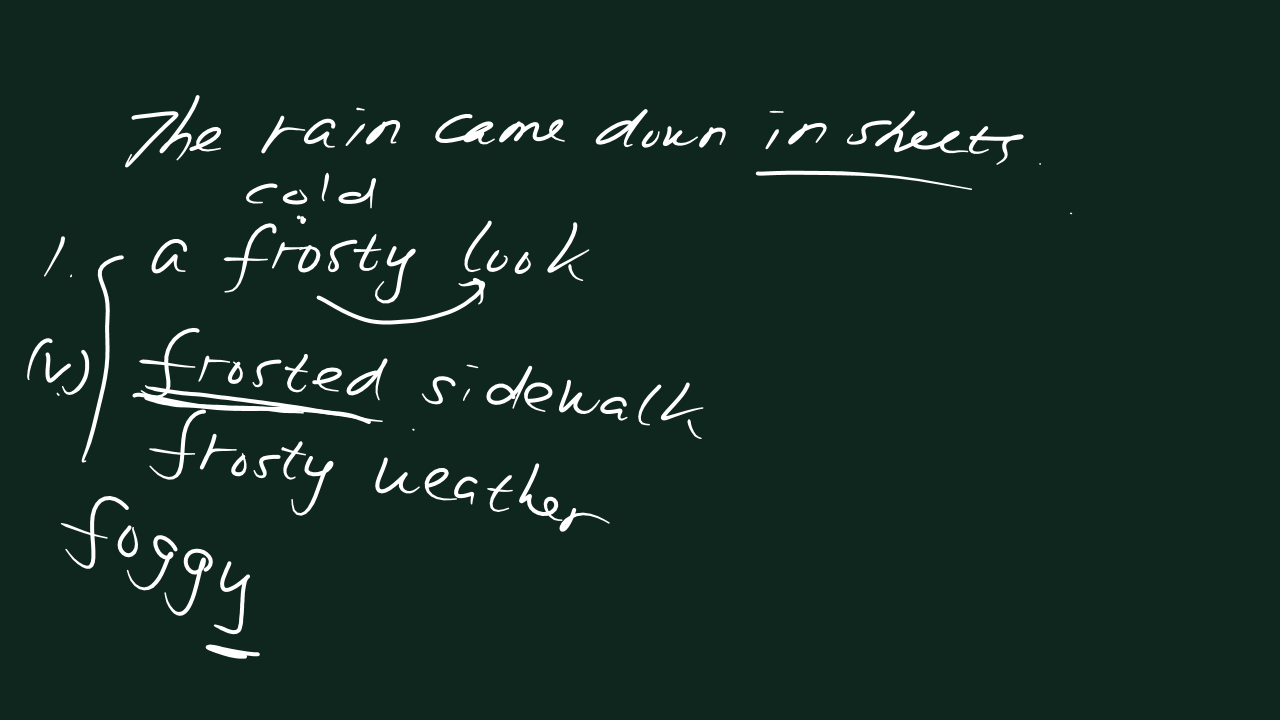 The rain came down in sheets.
cold
1. a frosty look
(v.) frosted sidewalk
frosty weather
foggy